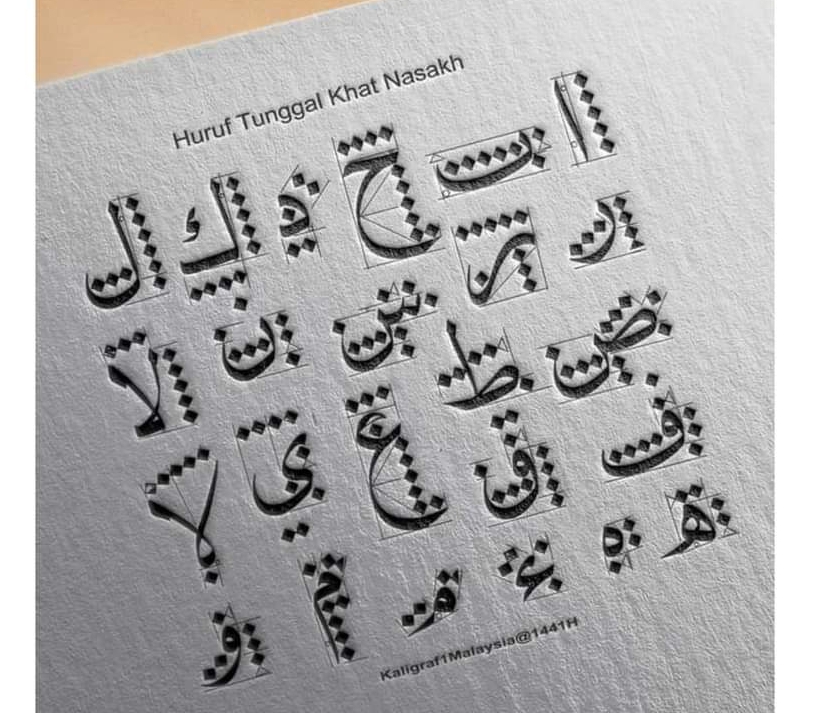 Huruf Tunggal Khat Nasakh
ا ب ح د ك ل
ر ر س ن لا
ص ط ع ي لا
ف ق
ه ه م م و
Kaligraf1Malaysia@1441H